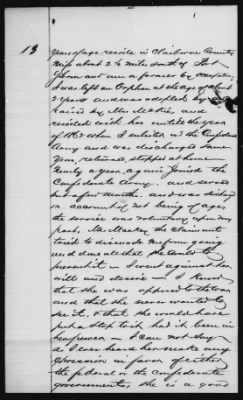 13
years of age, reside in Claiborne County
Miss about 2 ½ miles south of Port
Gibson and am a farmer by occupation
I was left an Orphan at the age of about
2 years and was adopted by
raised by Mrs and
resided with her until the year
of 1862 when I enlisted in the Confederate
Army and was discharged same
year, returned, stopped at home
nearly a year, again joined the
Confederate Army, and served
for a few months and was discharged
on account of not being of age,
the service was voluntary upon my
part. Mrs the claimant
tried to dissuade me from going
and done all that she could to
prevent it — I went against her
will and desire — I know
that she was opposed to the war
and that she never wanted to
see it, & that she would have
put a stop to it had it been in
her power — I can not say
I ever heard her make any
expression in favor of either
the federal or the Confederate
governments, she is a good